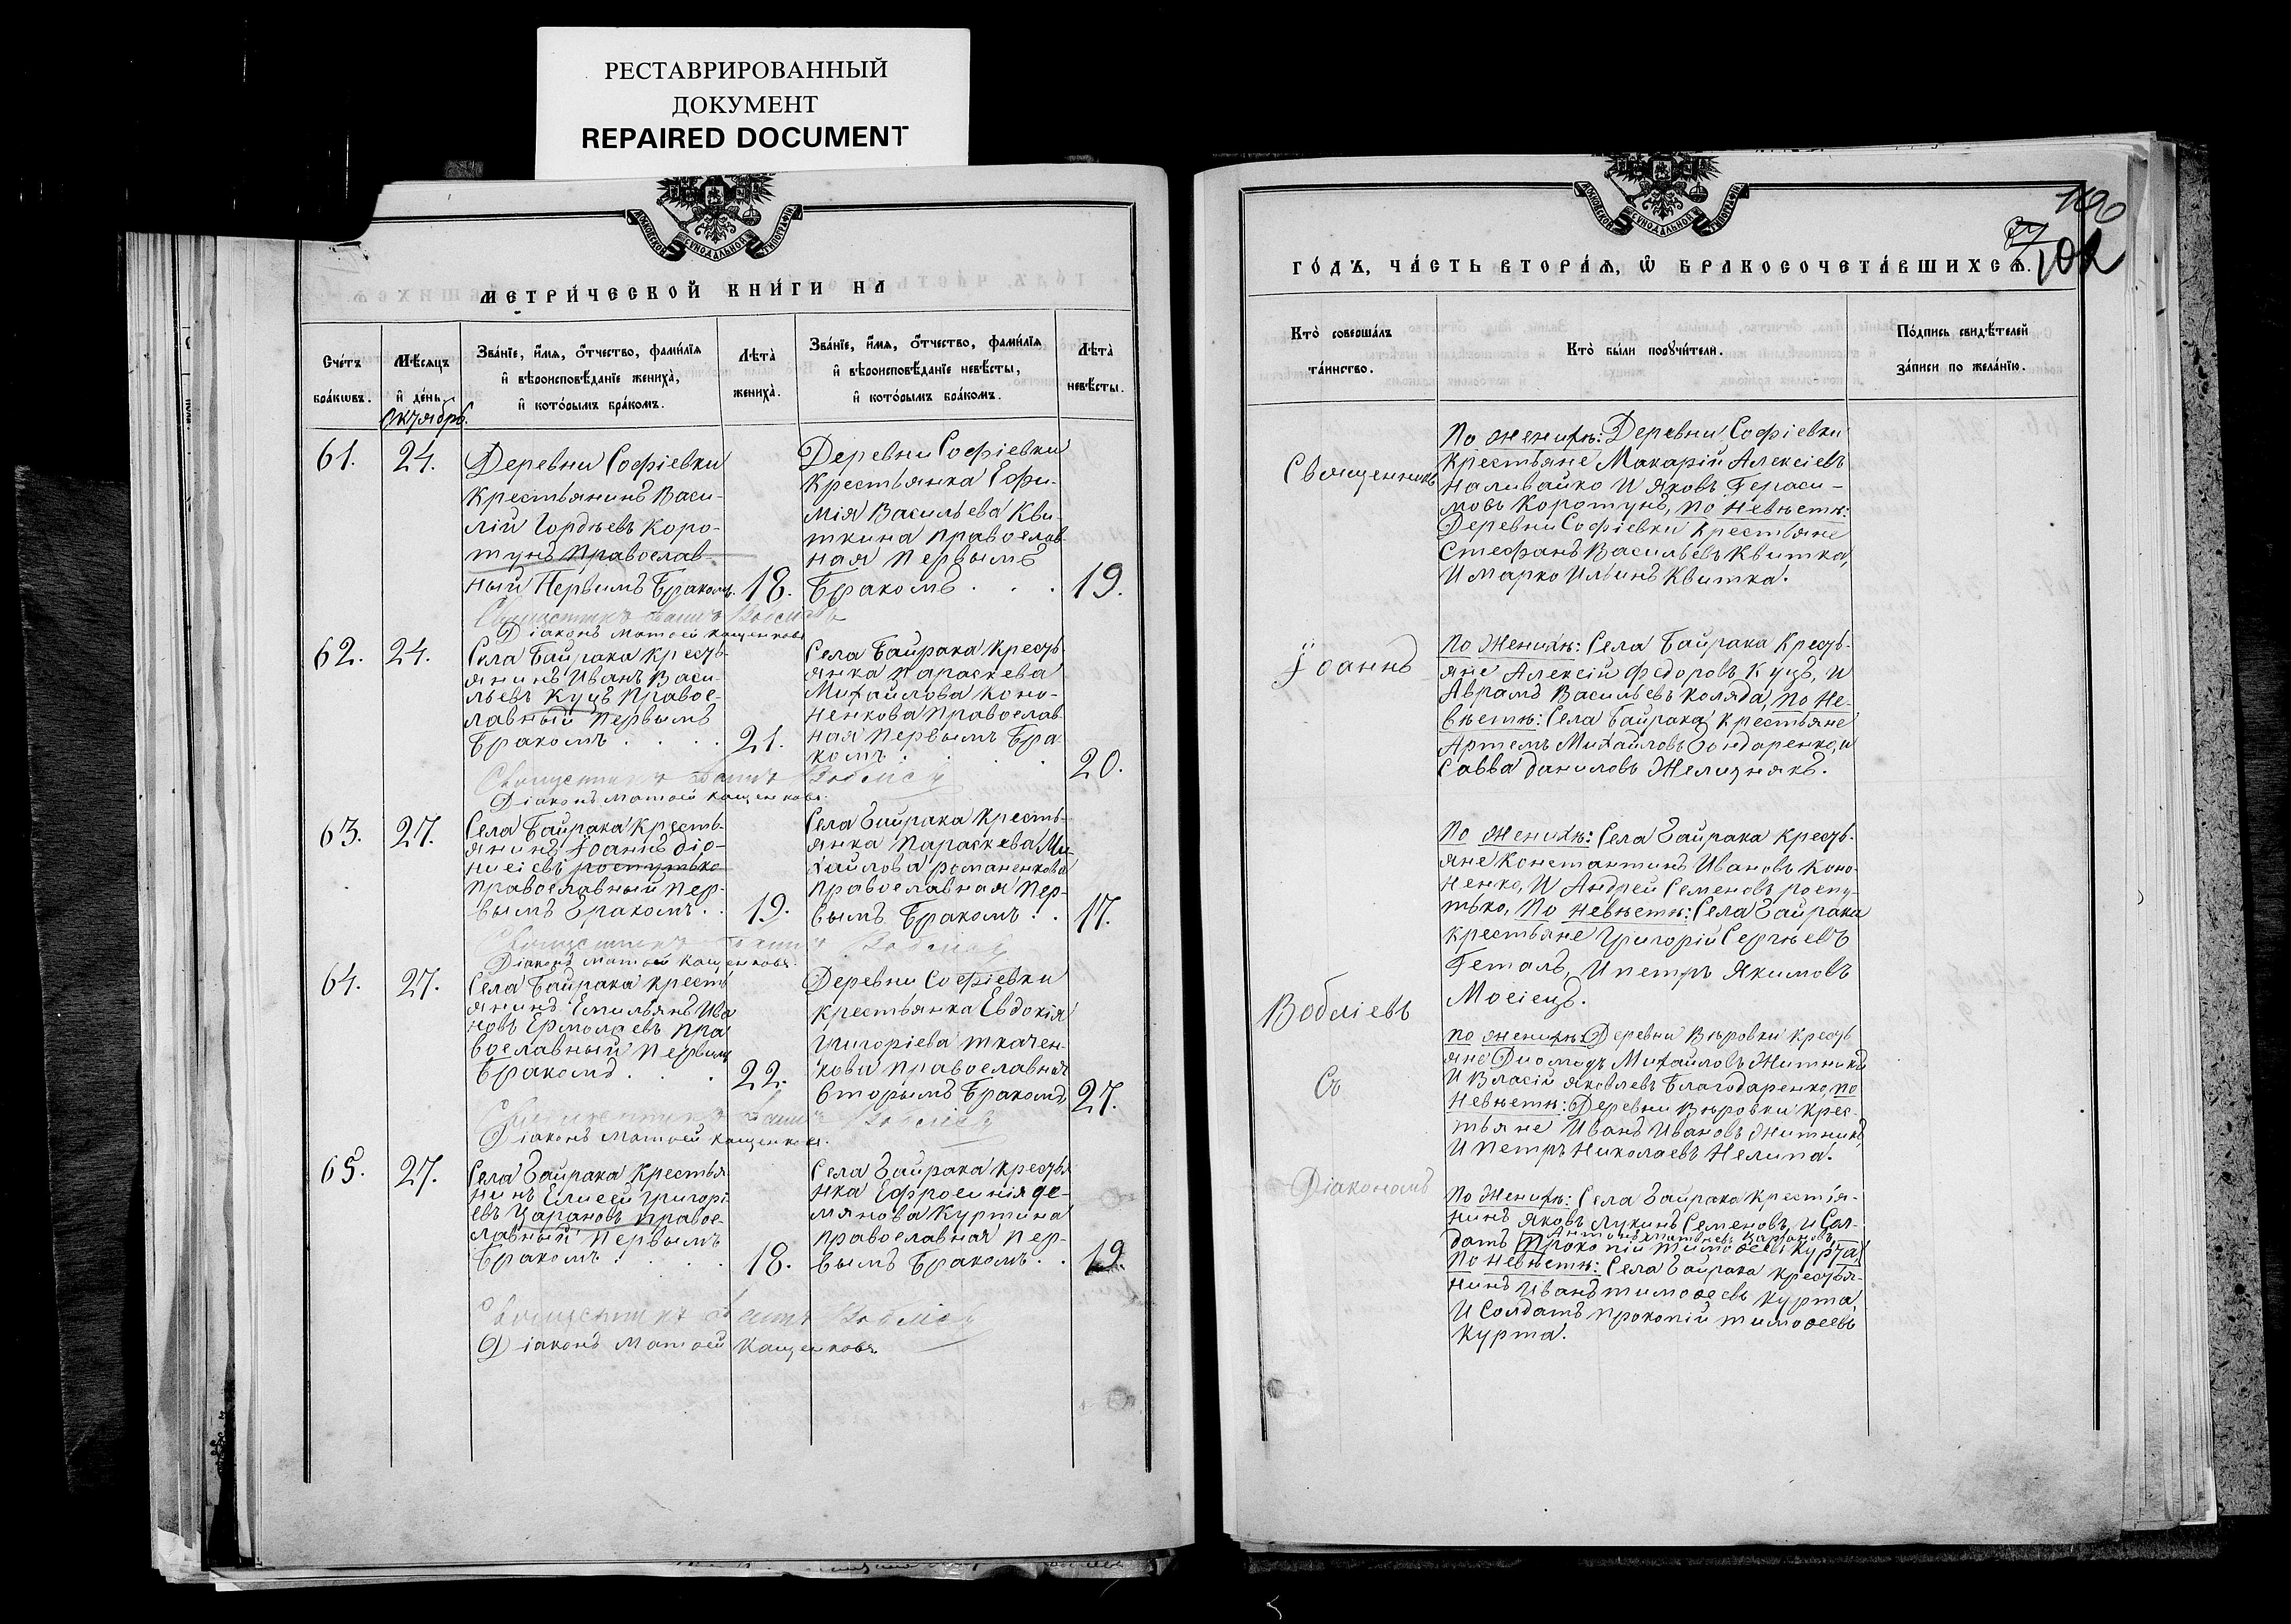 РЕСТАВРИРОВАННЫЙ
ДОКУМЕНТ
REPAIRED DOCUMENT
МОСКОВСКОЙ СѴНОДАЛЬНОЙ ТИПОГРАФІИ
МЕТРИ́ЧЕСКОЙ КНИ́ГИ НА
Сче́тъ
бра́кѡвъ.
Мѣ́сяцъ
и҆ де́нь.
Зва́нїе, и҆́мя, ѻ҆́тчество, фами́лїя
и҆ вѣроисповѣ́данїе жениха̀,
и҆ кото́рымъ бра́комъ.
Лѣ́та̀
жениха̀.
Зва́нїе, и҆́мя, ѻ҆́тчество, фами́лїя
и҆ вѣроисповѣ́данїе невѣ́сты,
и҆ кото́рымъ бра́комъ.
Лѣ́та̀
невѣ́сты.
Октябрь.
61.
24.
Деревни Софіевки
Крестьянинъ Васи-
лій Гордѣевъ Коро-
тунъ Православ-
ный Первымъ Бракомъ.
18.
Деревни Софіевки
Крестьянка Ефи-
мія Васильева Кви-
ткина Православ-
ная Первымъ
Бракомъ . . .
19.
Діаконъ Матѳей Кащенковъ
62.
24.
Села Байрака Кресть-
янинъ Иванъ Васи-
льевъ Куцъ Правос-
лавный Первымъ
Бракомъ . . . .
21.
Села Байрака Кресть-
янка Параскева
Михайлова Коно-
ненкова Православ-
ная Первымъ Бра-
комъ . . .
20.
Діаконъ Матѳей Кащенковъ.
63.
27.
Села Байрака Кресть-
янинъ Іоаннъ Діо-
нисіевъ Роспутько
Православный Пер-
вымъ Бракомъ. .
19.
Села Байрака Кресть-
янка Параскева Ми-
хайлова Романенкова
Православная Пер-
вымъ Бракомъ . .
17.
Діаконъ Матѳей Кащенковъ.
64.
27.
Села Байрака Кресть
янинъ Емильянъ Ива
новъ Ермолаевъ Пра
вославный Первымъ
Бракомъ . . .
22.
Деревни Софіевки
Крестьянка Евдокія
Григоріева Ткачен-
кова Православная
Вторымъ Бракомъ,
27.
Діаконъ Матѳей Кащенковъ.
65.
27.
Села Байрака Крестья
нинъ Елисей Григорі
евъ Царановъ Правос-
лавный Первымъ
Бракомъ . . . .
18.
Села Байрака Крестья
нка Ефросинія Де-
мянова Куртина
Православная Пер-
вымъ Бракомъ. .
19.
Діаконъ Матѳей Кащенковъ.
МОСКОВСКОЙ СѴНОДАЛЬНОЙ ТИПОГРАФІИ
102
ГО́ДЪ, ЧА́СТЬ ВТОРА́Ѧ, Ѡ҆ БРАКОСОЧЕТА́ВШИХСѦ.
Кто̀ соверша́лъ
та́инство.
Кто̀ бы́ли порꙋчи́тели.
По́дпись свидѣ́телей
за́писи по жела́нїю.
Священникъ
Іоаннъ
Вобліевъ
Со
Діакономъ
По женихѣ: Деревни Софіевки
Крестьяне Макарій Алексіевъ
Наливайко И Яковъ Гераси-
мовъ Коротунъ, По Невѣстѣ:
Деревни Софіевки Крестьяне
Стефанъ Васильевъ Квитка,
И Марко Ильинъ Квитка.
По Женихѣ: Села Байрака Кресть-
яне Алексій Федоровъ Куцъ, И
Аврамъ Васильевъ Коляда, По Не-
вѣстѣ: Села Байрака Крестьяне
Артемъ Михайловъ Бондаренко, и
Савва Даниловъ Желизнякъ.
По женихѣ: Села Байрака Кресть-
яне Константинъ Ивановъ Коно-
ненко, И Андрей Семеновъ Роспу-
тько, По Невѣстѣ: Села Байрака
Крестьяне Григорій Сергѣевъ
Геталъ, И Петръ Якимовъ
Мосіецъ.
По женихѣ: Деревни Вѣровки Кресть
яне Диомидъ Михайловъ Житникъ
И Власій Яковлевъ Благодаренко, По
Невѣстѣ: Деревни Вѣровки Крес-
тьяне Иванъ Ивановъ Житникъ,
И Петръ Николаевъ Нелипа.
По Женихѣ: Села Байрака Крестія-
нинъ Яковъ Лукинъ Семеновъ, И Сол-
датъ Прокопій Тимоѳеевъ Курта
По Невѣстѣ: Села Байрака Крестья-
нинъ Иванъ Тимоѳеевъ Курта,
И Солдатъ Прокопій Тимоѳеевъ
Курта.